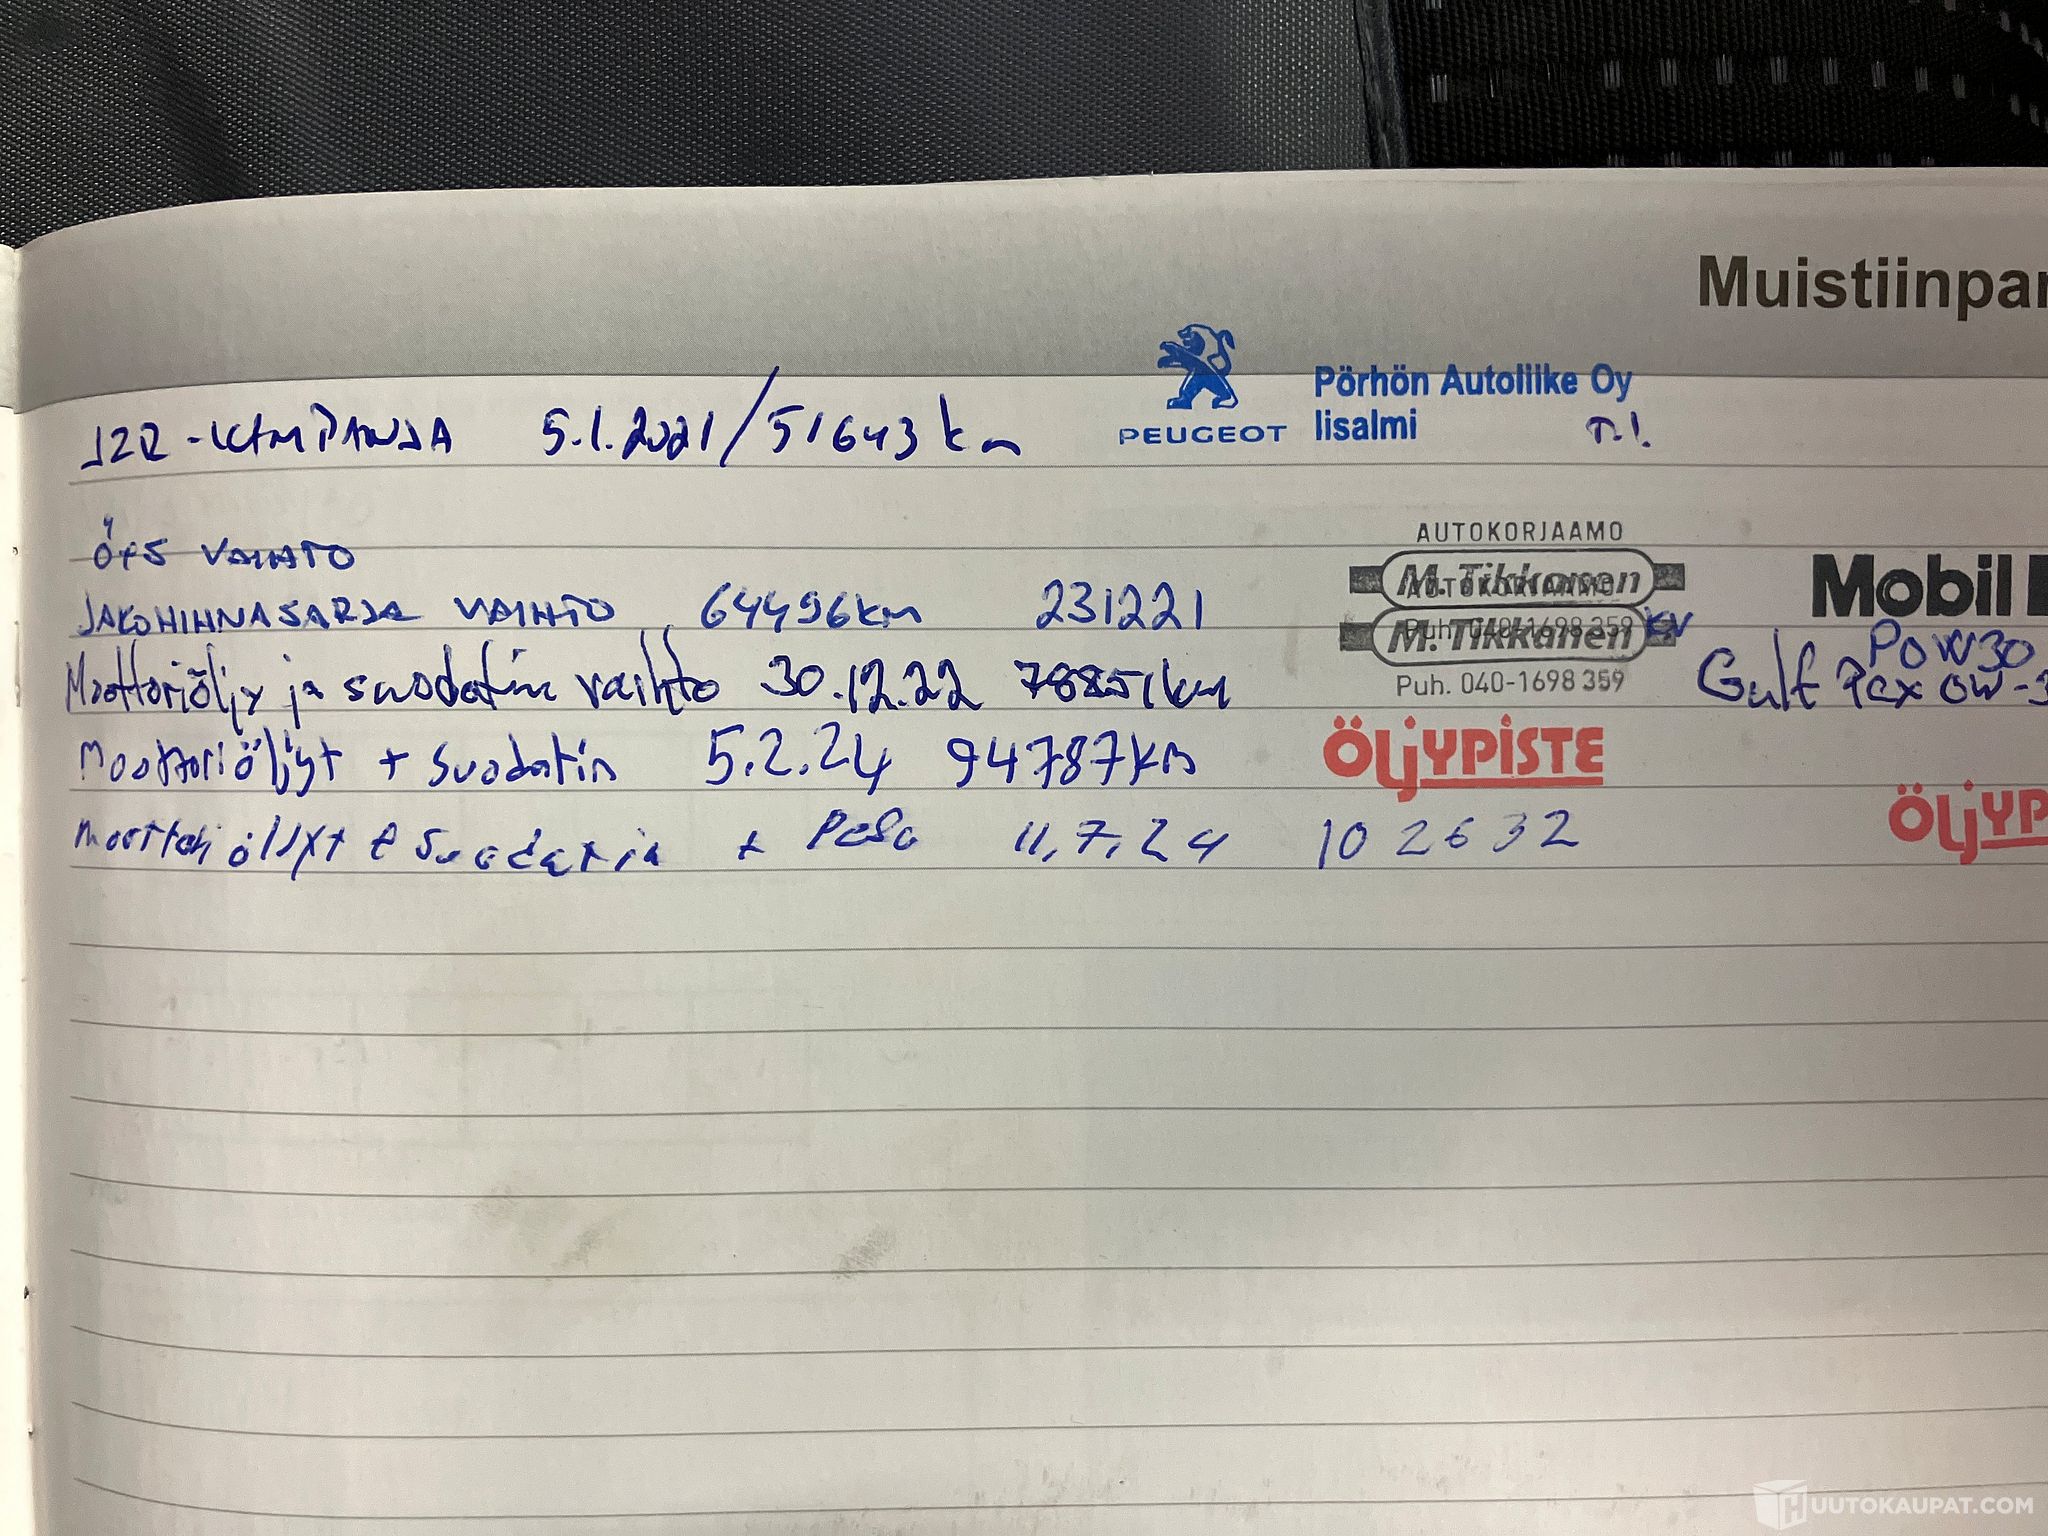 Muistiinpan
JZR-KAMPANJA 5.1.2021/51643 km PEUGEOT Pörhön Autoliike Oy
Iisalmi T.I.
AUTOKORJAAMO
Ö+S VAIHTO M. Tikkanen Mobil
AUTOKORJAAMO
JAKOHIHNASARJA VAIHTO 64496km 231221 Puh. 040-1698 359
M. Tikkanen KV POW30
Moottoriöljy ja suodatin vaihto 30.12.22 78851km Puh. 040-1698 359 Gulf Pex 0W-3
Moottoriöljyt + suodatin 5.2.24 94787km ÖLJYPISTE
moottoriöljyt + suodatin + Pesu 11,7,24 102632 ÖLJYP
HUUTOKAUPAT.COM